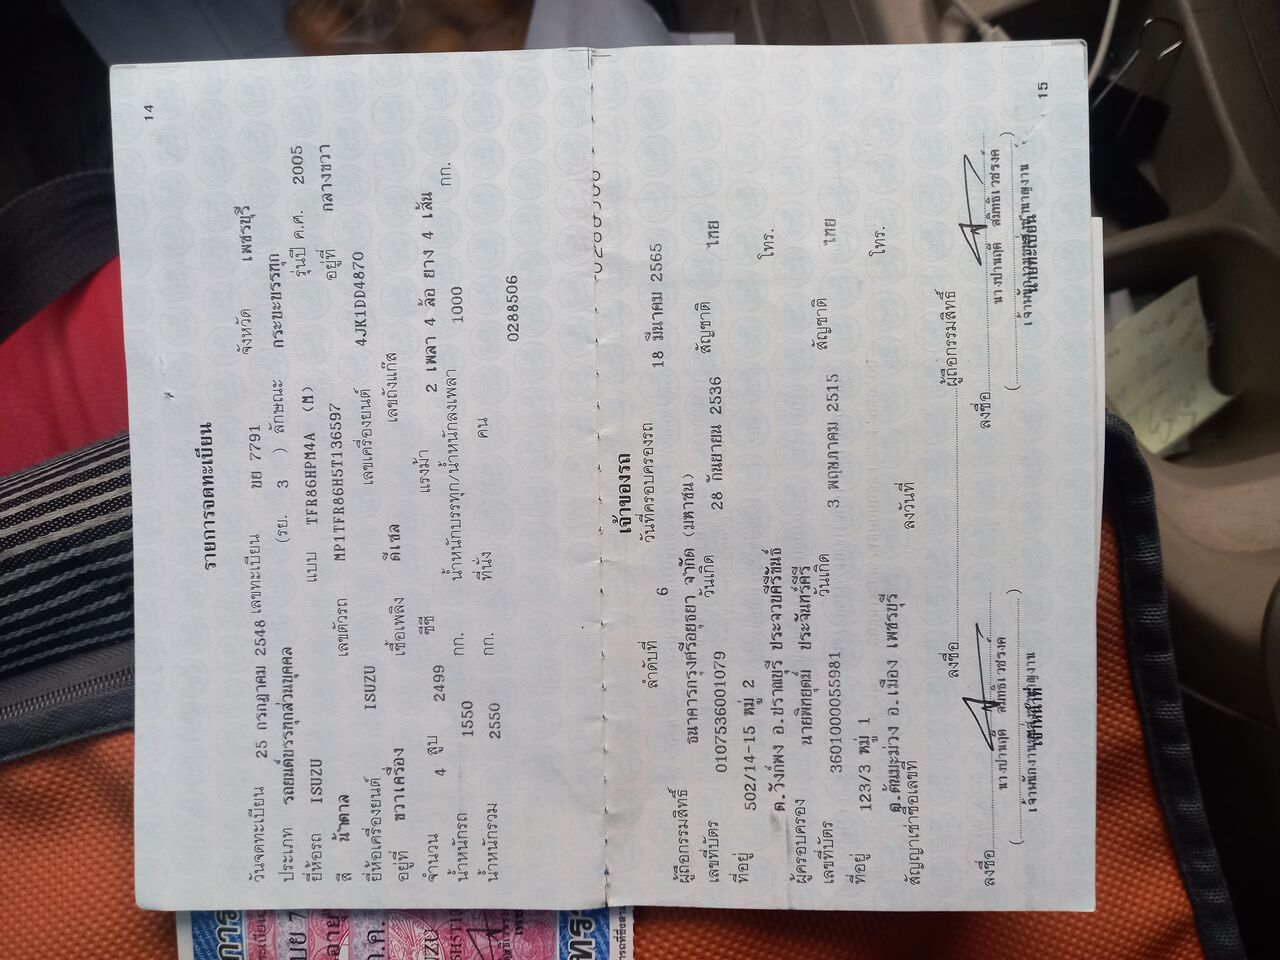 14
รายการจดทะเบียน
วันจดทะเบียน 25 กรกฎาคม 2548 เลขทะเบียน บย 7791 จังหวัด เพชรบุรี
ประเภท รถยนต์บรรทุกส่วนบุคคล (รย. 3 ) ลักษณะ กระบะบรรทุก
ยี่ห้อรถ ISUZU แบบ TFR86HPM4A (M) รุ่นปี ค.ศ. 2005
สี น้ำตาล เลขตัวรถ MP1TFR86H5T136597 อยู่ที่ กลางขวา
ยี่ห้อเครื่องยนต์ ISUZU เลขเครื่องยนต์ 4JK1DD4870
อยู่ที่ ขวาเครื่อง เชื้อเพลิง ดีเซล เลขถังแก๊ส
จำนวน 4 สูบ 2499 ซีซี แรงม้า 2 เพลา 4 ล้อ ยาง 4 เส้น
น้ำหนักรถ 1550 กก. น้ำหนักบรรทุก/น้ำหนักลงเพลา 1000 กก.
น้ำหนักรวม 2550 กก. ที่นั่ง คน
0288506
เจ้าของรถ
ลำดับที่ 6 วันที่ครอบครองรถ 18 มีนาคม 2565
ผู้ถือกรรมสิทธิ์ ธนาคารกรุงศรีอยุธยา จำกัด (มหาชน)
เลขที่บัตร 0107536001079 วันเกิด 28 กันยายน 2536 สัญชาติ ไทย
ที่อยู่ 502/14-15 หมู่ 2 โทร.
ต.วังก์พง อ.ปราณบุรี ประจวบคีรีขันธ์
ผู้ครอบครอง นายพิทยุตม์ ประจันทร์ศรี
เลขที่บัตร 3601000055981 วันเกิด 3 พฤษภาคม 2515 สัญชาติ ไทย
ที่อยู่ 123/3 หมู่ 1 โทร.
ต.ต้นมะม่วง อ.เมือง เพชรบุรี
สัญญาเช่าซื้อเลขที่ ลงวันที่
ลงชื่อ ผู้ถือกรรมสิทธิ์
ลงชื่อ ลงชื่อ
นางปานฤดี สมิทธิเวชรงค์ นางปานฤดี สมิทธิเวชรงค์
เจ้าหน้าที่ นายทะเบียน
15